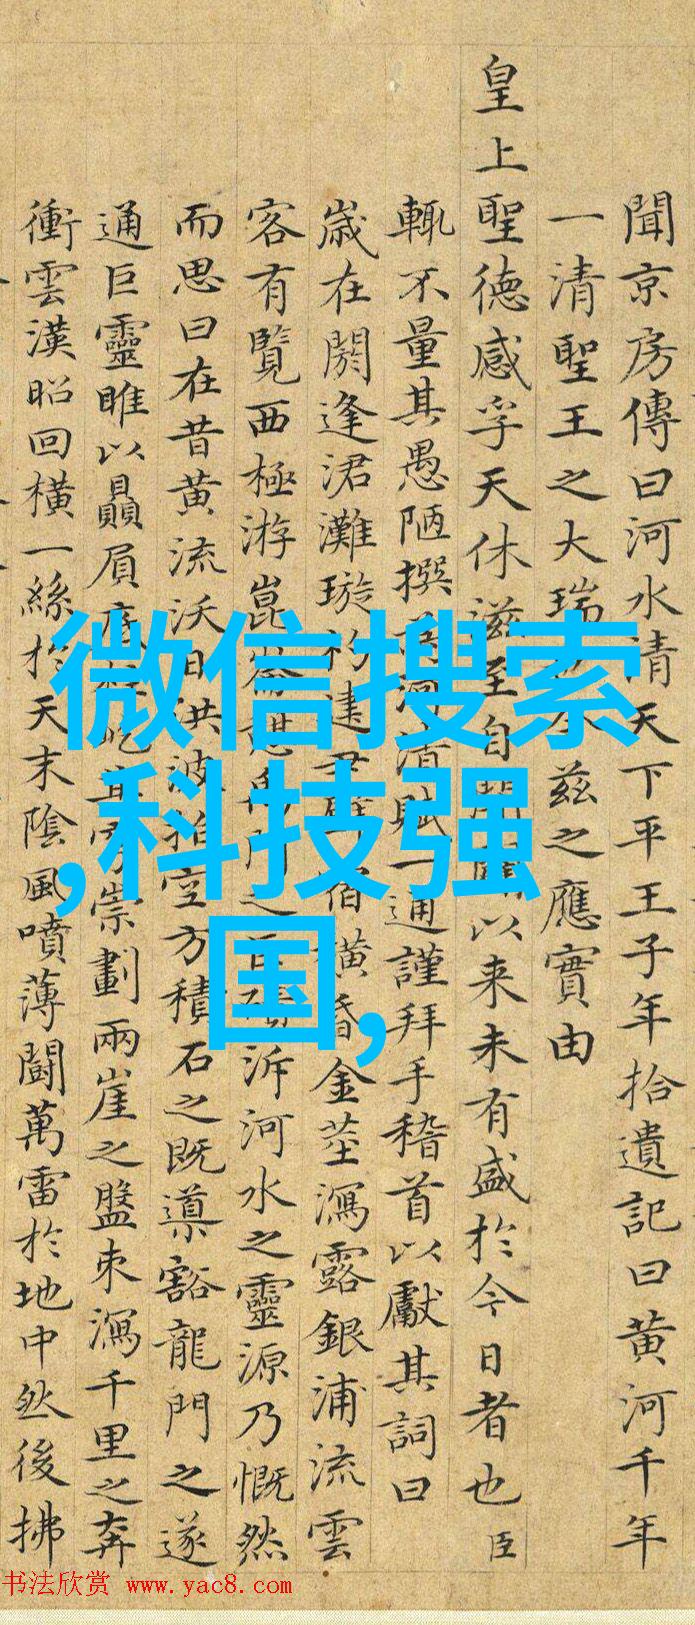 聞京房傳曰河水清天下平王子年拾遺記曰黄河千年
一清聖王之大瑞今茲之應實由
皇上聖德感孚天休滋至自開闢以来未有盛於今日者也臣
輒不量其愚陋撰河清賦一通謹拜手稽首以獻其詞曰
歲在閼逢涒灘璇杓建金莖瀉露銀浦流雲
客有覽西極游崑崙泝河水之靈源乃慨然
而思曰在昔黄流沃日洪波拍空方積石之既導豁龍門之遂
通巨靈睢以贔屓崇劃兩崖之盤束瀉千里之奔
衝雲漢昭回横一絲於天末陰風噴薄鬬萬雷於地中然後拂
微信搜索
,科技强
国,
书法欣赏 www.yac8.com